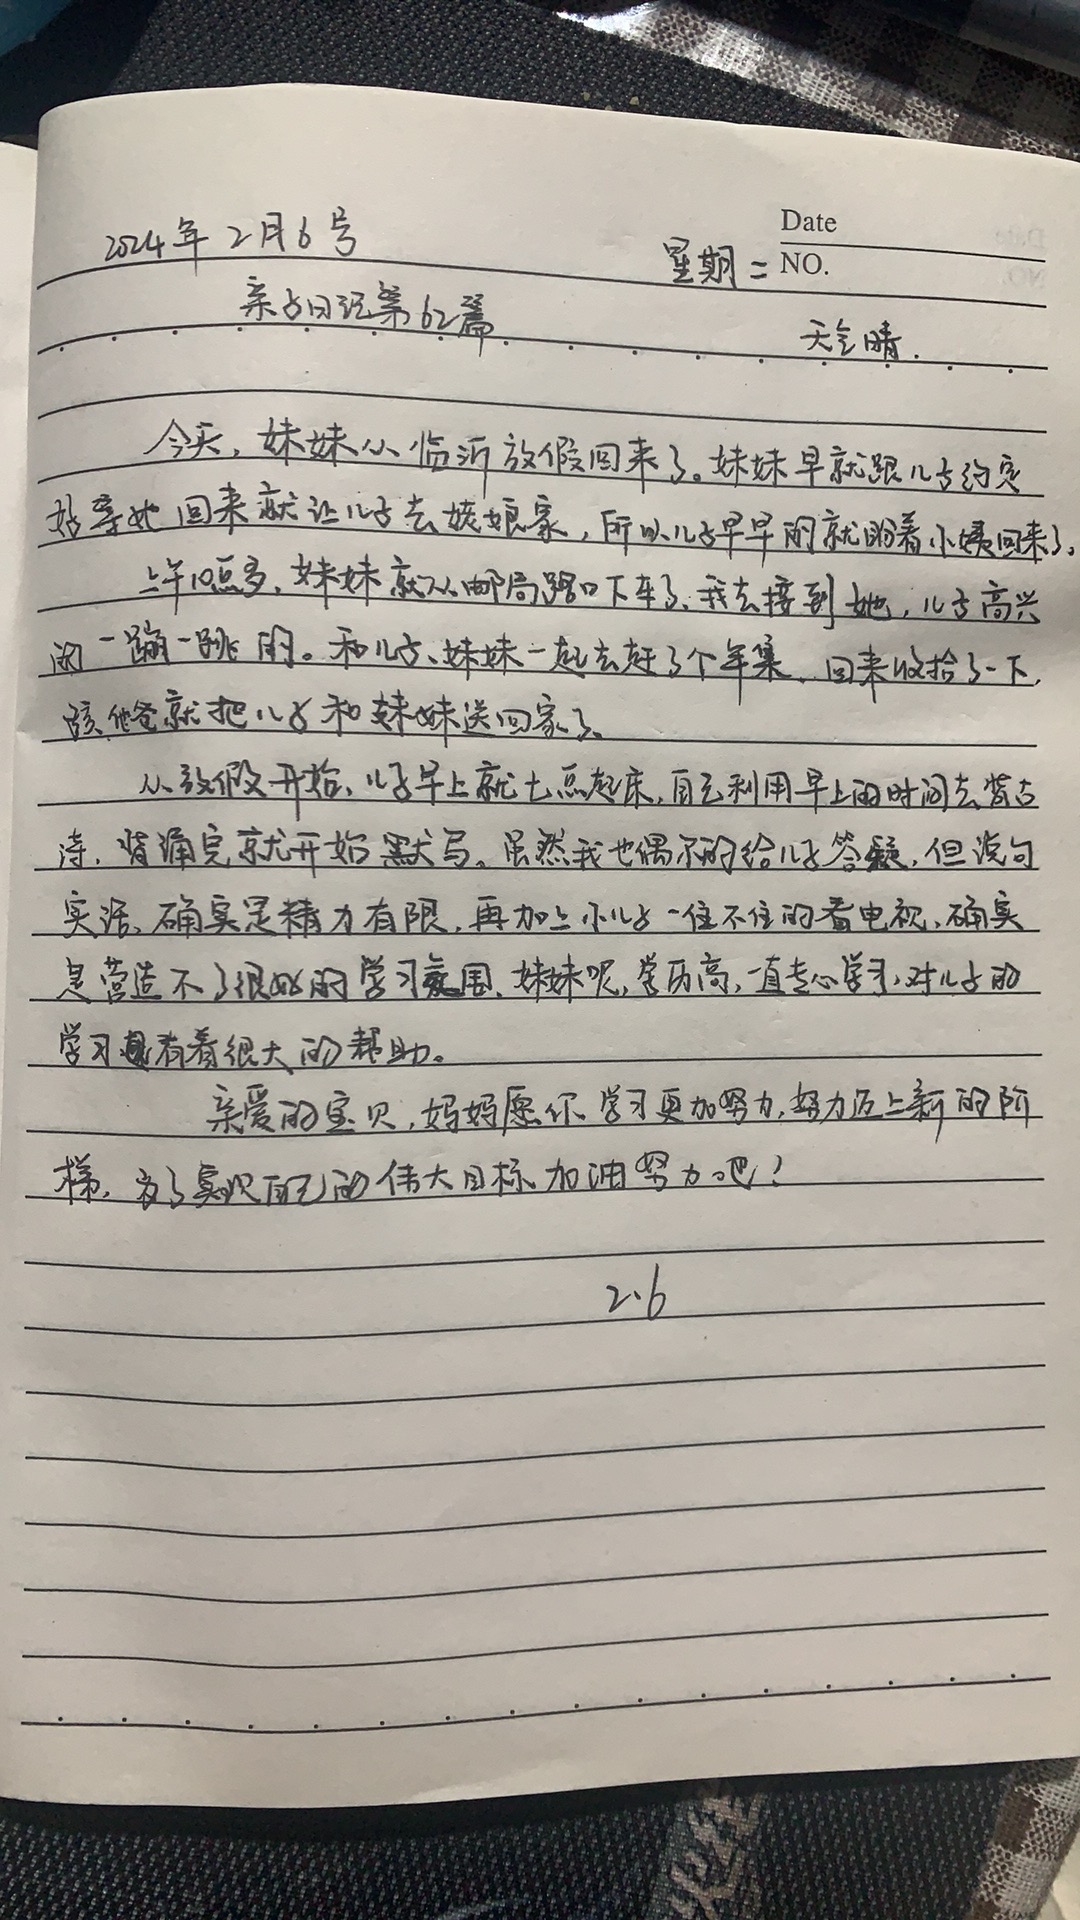 Date
2024年2月6号
星期二 NO.
亲子日记第62篇
天气晴.
今天，妹妹从临沂放假回来了。妹妹早就跟儿子约定
好等她回来就让儿子去姥娘家，所以儿子早早的就盼着小姨回来了。
上午10点多，妹妹就从邮局路口下车了，我去接到她，儿子高兴
的一蹦一跳的。和儿子、妹妹一起去赶了个年集，回来收拾了一下，
孩他爸就把儿子和妹妹送回家了。
从放假开始，儿子早上就七点起床，自己利用早上的时间去背古
诗，背诵完就开始默写。虽然我也偶尔的给儿子答疑，但说句
实话，确实是精力有限，再加上小儿子一住不住的看电视，确实
是营造不了很好的学习氛围，妹妹呢，学历高，一直专心学习，对儿子的
学习有着很大的帮助。
亲爱的宝贝，妈妈愿你学习更加努力，努力迈上新的阶
梯，为了实现自己的伟大目标加油努力吧！
2.6